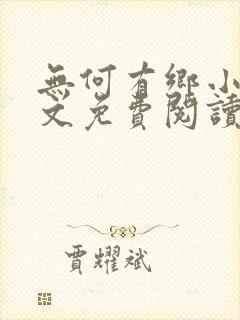 無何有鄉小
文免費閱讀
賈耀斌